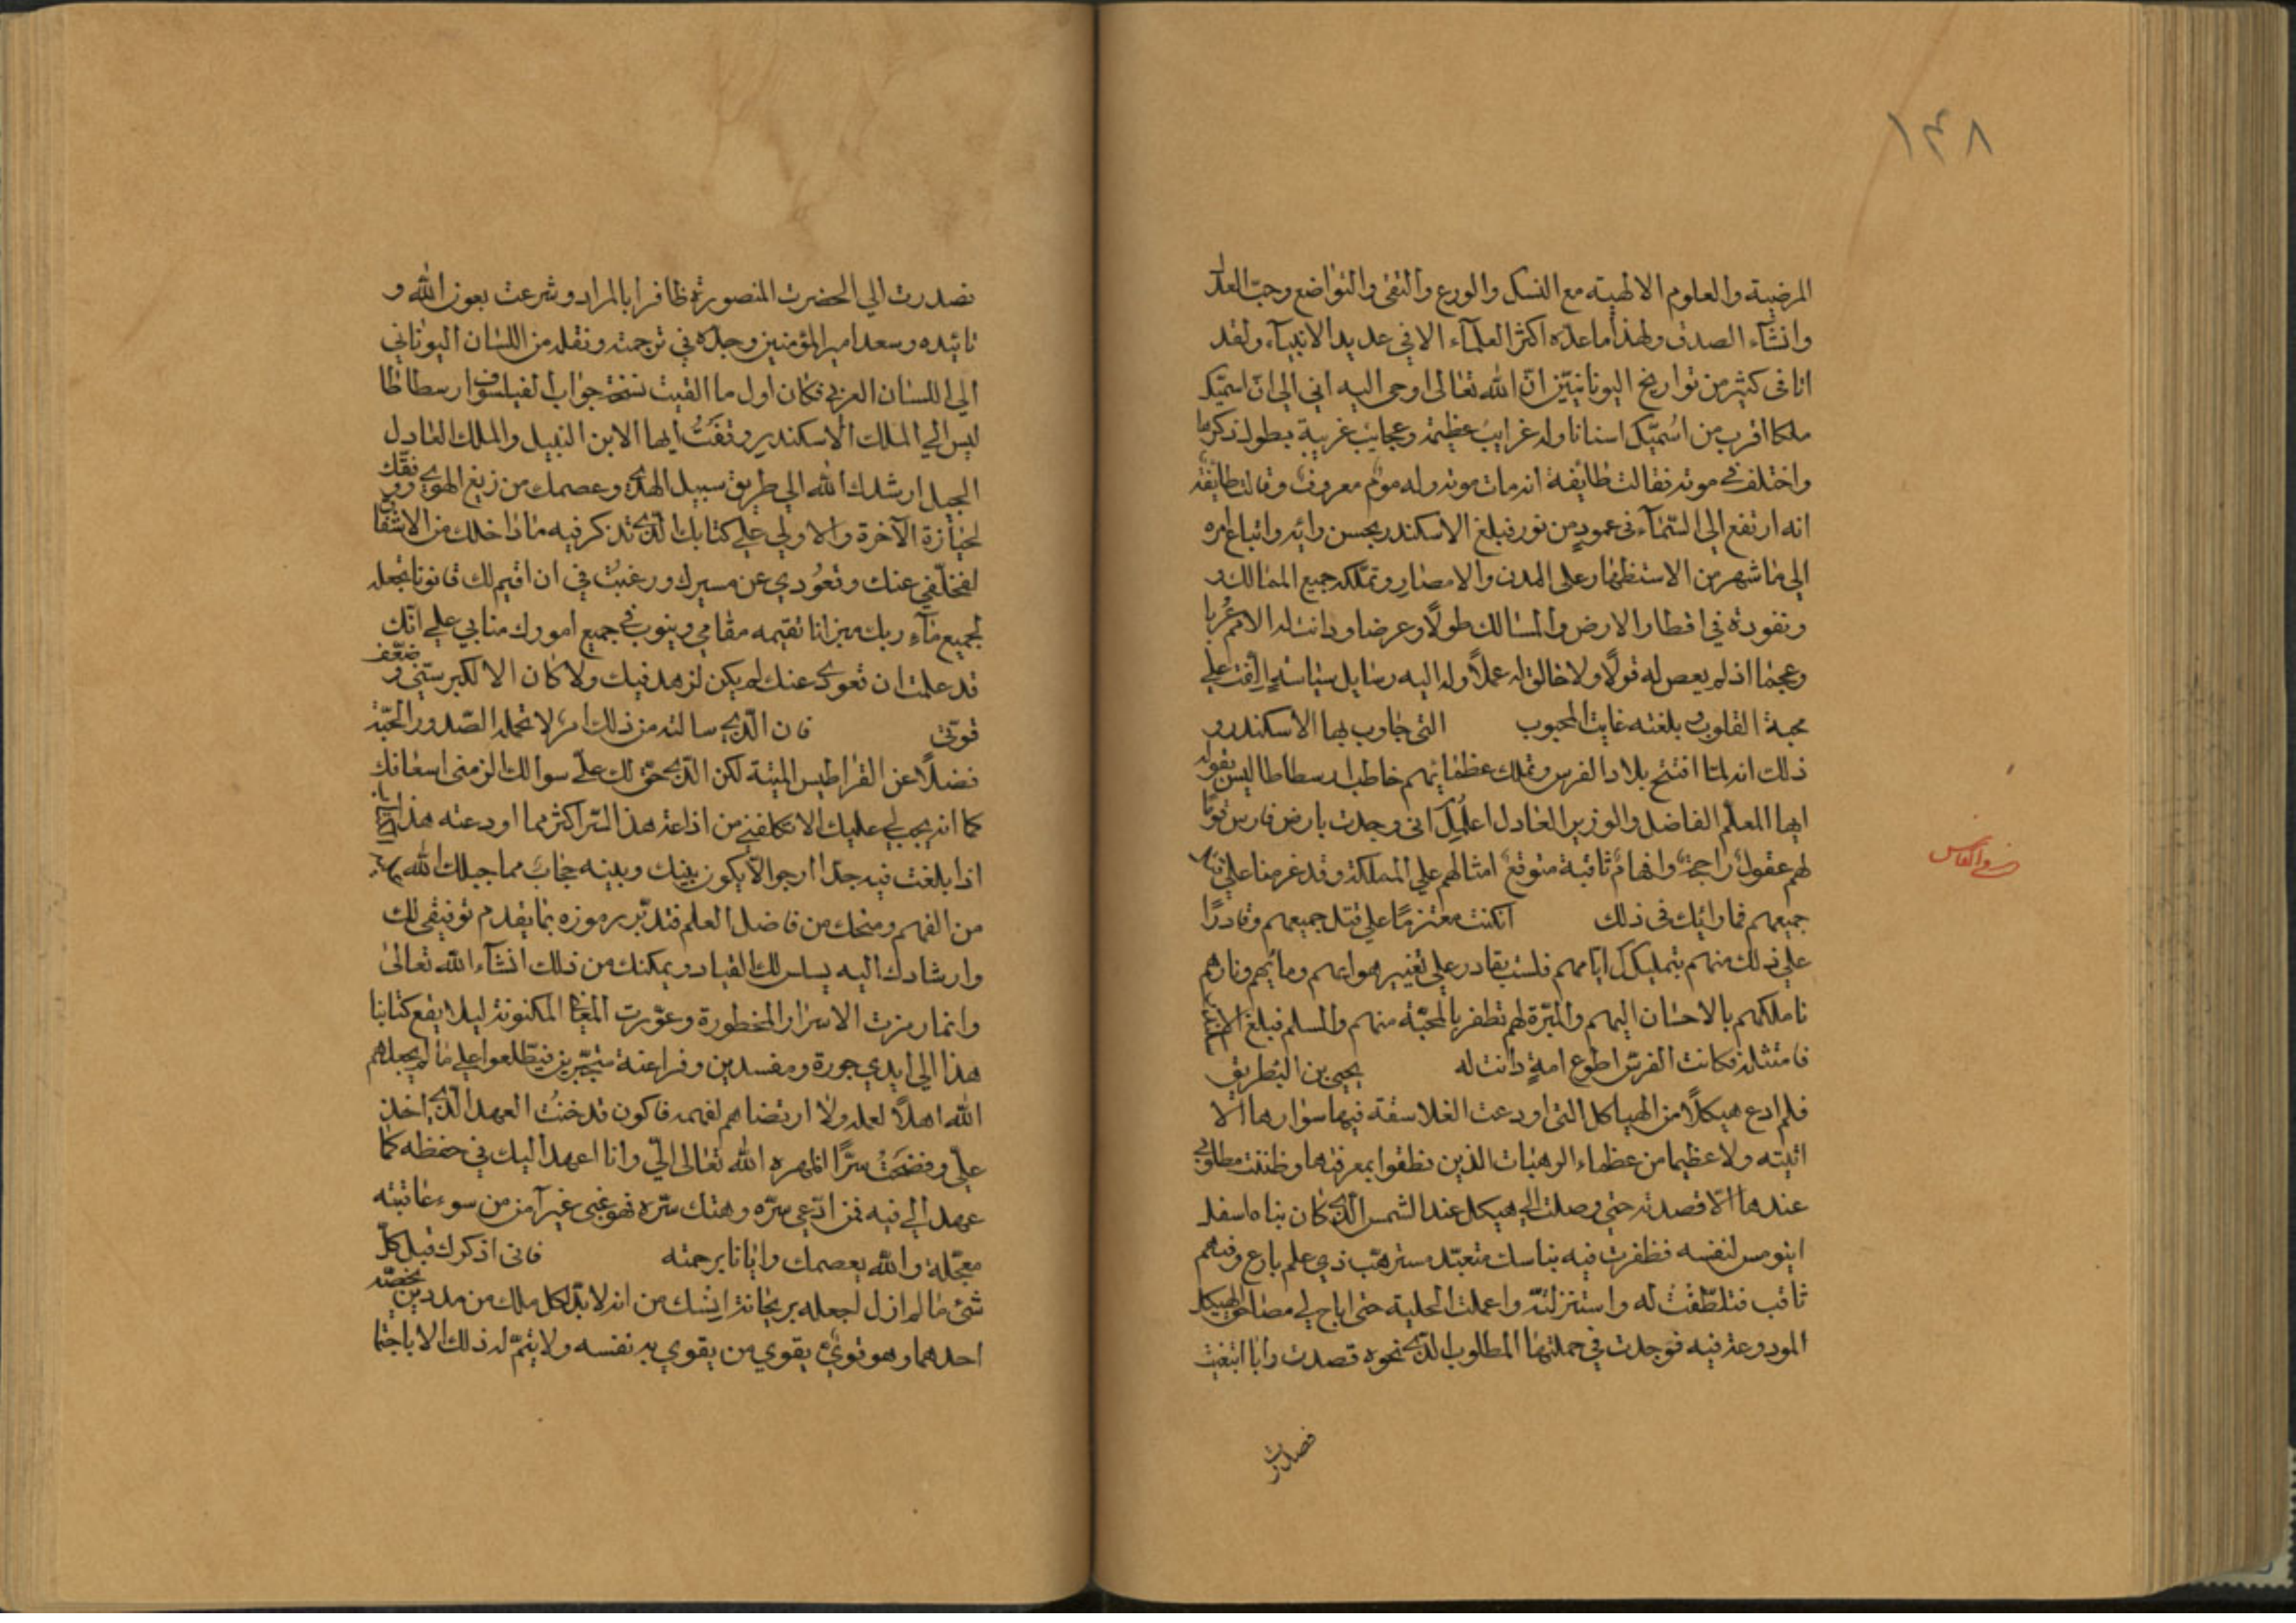 ١٣٨
المرضية والعلوم الالهية مع النسك والورع والتقى والتواضع وحبّ العدل
وانشآء الصدق ولهذا ما عدّه اكثر العلمآء الا في عديد الانبيآء ولقد
انا في كثير من تواريخ اليونانيّين انّ الله تعالى اوحى اليه اني الى ان اسمّيك
ملكا اقرب من اسُمّيك اسنانا وله غرايب عظيمة وعجايب غريبة يطول ذكرها
واختلف في موته فقالت طائفة انه مات موته وله مومٌ معروف وقالت طايفة
انه ارتفع الى السّمآء في عمودٍ من نور فبلغ الاسكندر بحسن رائه واتباع امره
الى ما شهر من الاستظهار على المدن والامصار وتملّكه جميع الممالك و
ونفوده في اقطار الارض والمسالك طولاً وعرضا ودانت له الامم عُربا
وعجما اذ لم يعص له قولاً ولا خالق له عملاً وله اليه رسايل سياسيةٍ الّفت على
محبة القلوب وبلغته غايت المحبوب التى جاوب بها الاسكندر و
ذلك انه لمّا افتتح بلاد الفرس وتملك عظمائهم خاطب ارسطاطاليس بقوله
ايها المعلّم الفاضل والوزير العادل اعلمك انى وجدت بارض فارس قومًا
لهم عقولٌ راجحةٌ وافهامٌ ثاقبة متوقعٌ امثالهم على المملكة وقد غرمنا على قتل
جميعهم فما رائيك في ذلك انكنت معتزمًا على قتل جميعهم وقادرًا
على ذلك منهم بتمليكك ايّاهم فلست بقادر على تغيير هواعهم ومائهم ونارهم
ناملكهم بالاحسان اليهم والمبّرة لهم تظفر بالمحبّة منهم والسلم فبلغ
فامتثله فكانت الفرس اطوع امةٍ دانت له يحيى بن البُطريق
فلم ادع هيكلاً من الهياكل التى اودعت الفلاسفة فيها سوارها الا
اتيته ولا عظيما من عظماء الرهبات الذين نطقوا بمعرفتها وظننت مطلوبى
عندها الّا قصدته حتى وصلت الي هيكل عند الشمس الّذى كان بناه اسفل
اينومس لنفسه فظفرت فيه بناسك متعبّد مسترهّب ذي علم بارع وفهم
ثاقب فتلطّفتُ له واستنزلتّه واعملت الحلية حتى اباح لي مصاحف الهيكل
المودوعة فيه فوجدت في جملتها المطلوب الّذى نحوه قصدت وايا ابتغيت
فصدرت
نصدرت الي الحضرت المنصورة ظافرا بالمراد وشرعت بعون الله و
تائيده وسعد امير المؤمنين وجدّه في ترجمته ونقله من اللسان اليوناني
الي اللسان العربي فكان اول ما القيت نسخة جواب الفيلسوف ارسطاطا
ليس الي الملك الاسكندر وقفتُ ايها الابن النبيل والملك العادل
الجيل ارشدك الله الي طريق سبيل الهدى وعصمك من زيغ الهوى ووفّقك
لحيازة الآخرة والاولي علي كتابك الّذى تذكر فيه ما داخلك من الاشفا
لتخلّفي عنك وتعُودي عن مسيرك ورغبتُ في ان اقيم لك قانونا تجعله
لجميع مآء ربك ميزانا تقيمه مقامي وينوب في جميع امورك منابي علي انّك
قد علمت ان تعودى عنك لم يكن لزهد فيك ولا كان الا لكبر سنّي وضعف
قوتي فان الّذى سالته من ذلك امرٌ لا تحمله الصّدور الحيّة
فضلاً عن القراطيس الميتة لكن الّذى يحق لك علّ سوالك الزمني اسعافك
كما انه يجب لي عليك الا تكلفني من اذاعة هذا السّر اكثر مما اودعته هذا
اذا بلغت فيه جدّا ارجو الّا يكون بينك وبينه حجابٌ مما جبلك الله
من الفهم ومنحك من فاضل العلم فتدبّر رموزه بما يقدم توفيقي لك
وارشادك اليه يسلس لك القياد ويمكنك من ذلك انشآء الله تعالى
وانما رمزت الاسرار المخطورة وعوّرت المغايا المكنونة ليلا يقع كتابنا
هذا الي ايدي جورة ومفسدين وفراعنة متجبّرين فيتطلعوا علي ما لم يجعلهم
الله اهلاً لعله ولا ارتضاهم لفهمه فاكون قد خنتُ العهد الّذى اخذ
علّي وفضحَتُ سرًّا اظهره الله تعالى اليّ وانا اعهد اليك في حفظه كما
عهد الي فيه فمن ادّعى سرّه وهتك سرّه فهو غبى غير آمن من سوء عاقبته
معجّلة والله يعصمك وايانا برحمته فانى اذكرك قبل كلّ
شئ ما لم ازل اجعله بريحانة ايشك من انه لا بدّ لكل ملك من مددين يخصّه
احدهما وهو قويٌ يقوي من يقوي به نفسه ولا يتمّ له ذلك الا باجتما